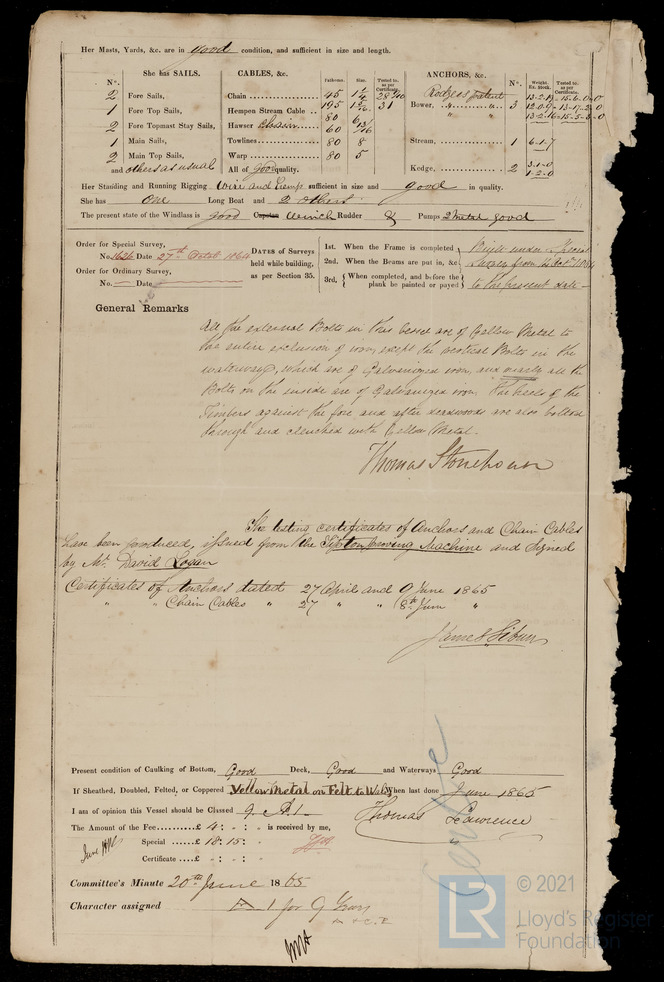 Her Masts, Yards, &c. are in good condition, and sufficient in size and length.
She has SAILS.
CABLES, &c.
ANCHORS, &c.
Nº.
Fathoms.
Size.
Tested to, as per Certificate.
Nº.
Weight. Ex. Stock.
Tested to, as per Certificate.
2 Fore Sails,
1 Fore Top Sails,
2 Fore Topmast Stay Sails,
1 Main Sails,
2 Main Top Sails,
and others as usual
Chain 45
Hempen Stream Cable 195 31
Hawser chain 80 6
60
Towlines 80 8
Warp 80 5
All of good quality.
Rodgers patent
Bower, 3
Stream, 1 6-1-7
Kedge, 2 3-1-0
1-2-0
Her Standing and Running Rigging Wire and Hemp sufficient in size and good in quality.
She has One Long Boat and 2 others
The present state of the Windlass is good Capstan Winch Rudder Pumps 2 metal good
Order for Special Survey,
No. 1626 Date 27th Octob 1864
Order for Ordinary Survey,
No. — Date —
DATES of Surveys held while building, as per Section 35.
1st. When the Frame is completed
2nd. When the Beams are put in, &c.
3rd. When completed, and before the plank be painted or payed
Built under Special
Survey from
to the present date
General Remarks
All the external Bolts in this vessel are of Yellow Metal to
the entire exclusion of iron, except the vertical Bolts in the
waterways, which are of Galvanized iron, and nearly all the
Bolts on the inside are of Galvanized iron. The heels of the
Timbers against the fore and after deadwoods are also bolted
through and clenched with Yellow Metal.
Thomas Stonehouse
The testing certificates of Anchors and Chain Cables
have been produced, issued from the Tipton proving Machine and Signed
by Mr. David Logan
Certificates of Anchors dated 27 April and 9 June 1865
" " Chain Cables " 27 " " 8th June "
James
Present condition of Caulking of Bottom, Good Deck, Good and Waterways Good
If Sheathed, Doubled, Felted, or Coppered Yellow Metal on Felt to Wales When last done June 1865
I am of opinion this Vessel should be Classed 9 A1
Thomas Lawrence
The Amount of the Fee £ 4 : - : - is received by me,
Special £ 18 : 15 : -
Certificate £ - : - : -
Committee's Minute 20th June 1865
Character assigned A 1 for 9 Years
LR
© 2021
Lloyd's Register
Foundation